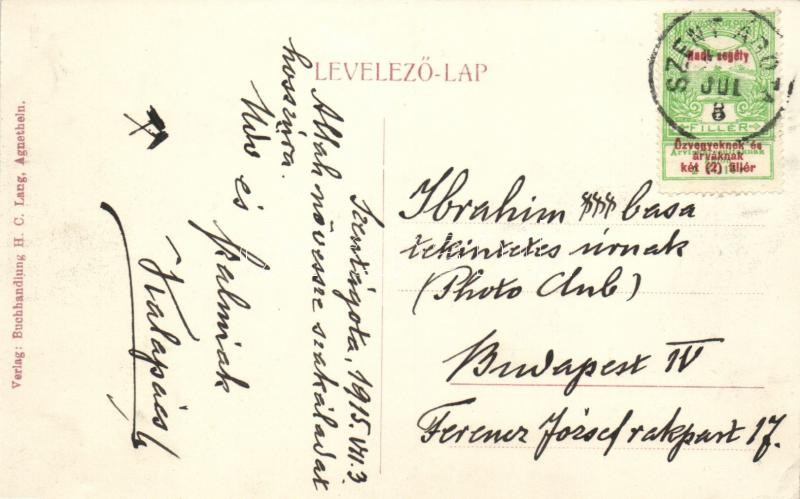 LEVELEZŐ-LAP
Szentágota, 1915. VII. 3.
Allah növessze szakáladat
hosszúra.
Üdv és
Kalapács
Verlag: Buchhandlung H. C. Lang, Agnetheln.
SZENTÁGOTA
JUL
Hadi segély
FILLER
Özvegyeknek és
árváknak
két (2) fillér
Ibrahim basa
tekintetes úrnak
(Photo Club)
Budapest IV
Ferencz József rakpart 17.